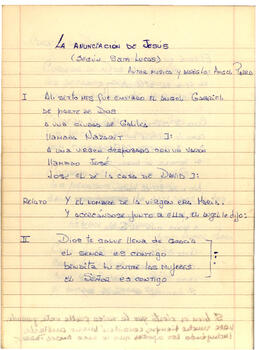 LA ANUNCIACION DE JESUS
(SEGUN SAN LUCAS)
AUTOR MUSICA Y ARREGLO: ANGEL
I AL SEXTO MES FUE ENVIADO EL ANGEL GABRIEL
DE PARTE DE DIOS
A UNA CIUDAD DE GALILEA
LLAMADA NAZARET I:
A UNA VIRGEN DESPOSADA CON UN VARON
LLAMADO JOSÉ
JOSE EL DE LA CASA DE DAVID I:
RELATO Y EL NOMBRE DE LA VIRGEN ERA MARIA.
Y ACERCANDOSE JUNTO A ELLA, EL ANGEL LE DIJO:
II DIOS TE SALVE LLENA DE GRACIA
EL SEÑOR ES CONTIGO
BENDITA TU ENTRE LAS MUJERES
EL SEÑOR ES CONTIGO